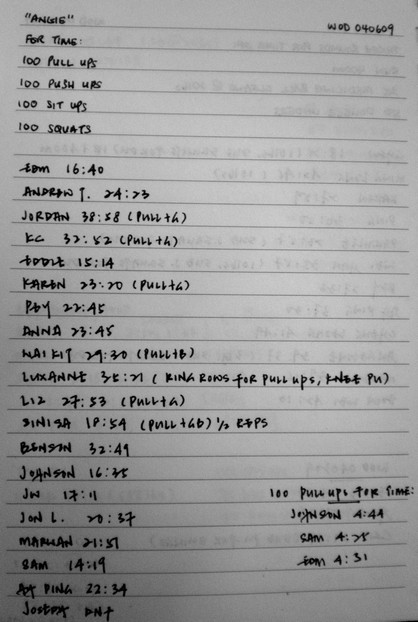 "ANGIE"
WOD 040609
FOR TIME:
100 PULL UPS
100 PUSH UPS
100 SIT UPS
100 SQUATS
EDM 16:40
ANDREW T. 24:23
JORDAN 38:58 (PULL+G)
KC 32:52 (PULL+G)
EDDIE 15:14
KAREN 23:20 (PULL+G)
22:45
ANNA 23:45
WAI KIT 29:30 (PULL+B)
LUXANNE 35:21 (RING ROWS FOR PULL UPS, KNEE PU)
LIZ 27:53 (PULL+G)
SINISA 18:54 (PULL+GB) 1/2 REPS
BENSON 32:49
JOHNSON 16:35
JW 17:11
JON L. 20:37
MARHAN 21:51
SAM 14:19
PING 22:34
JOSEPH DNF
100 PULL UPS FOR TIME:
JOHNSON 4:44
SAM 4:25
EDM 4:31